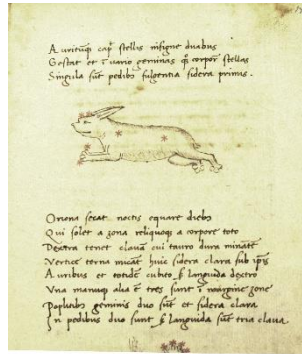 Auritumq; cap' stellis insigne duabus
Gestat et ĩ vario geminas q̃ corpore stellas
Singula sũt pedibs fulgentia sidera primis.
Oriona secat noctis equare diebs
Qui solet a zona reliquoq; a corpore toto
Dextra tenet clavã cui tauro dura minatẽ
Vertice terna micãt huic sidera clara sub ip̃s
Auribus et totidẽ cubito languida dextro
Vna manuq; alia ẽ tres sunt ĩ margine zone
Poplitibs geminis duo sũt et sidera clara
In pedibus duo sunt languida sũt tria clava.